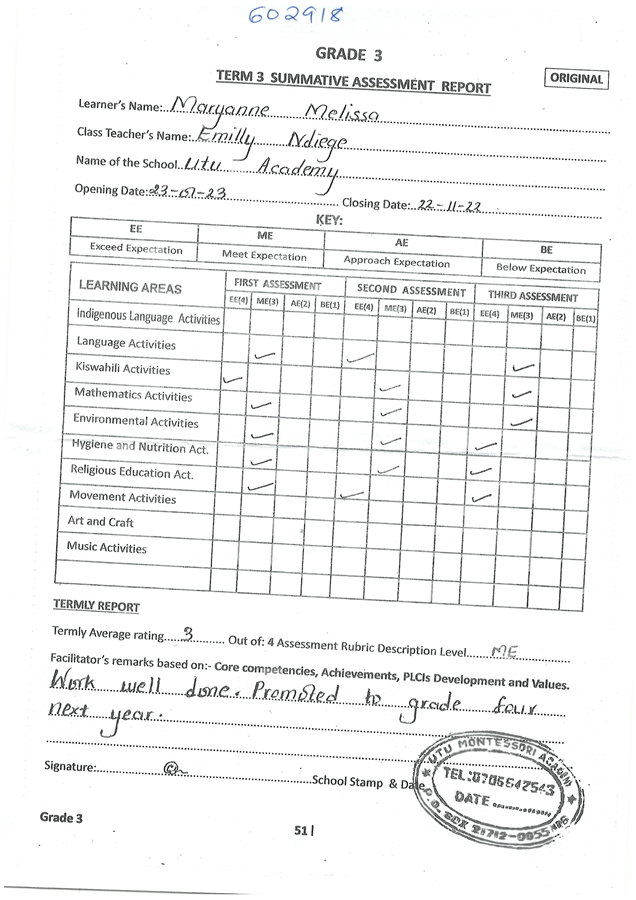 602918
GRADE 3
TERM 3 SUMMATIVE ASSESSMENT REPORT
ORIGINAL
Learner's Name: Maryanne Melissa
Class Teacher's Name: Emilly Ndiege
Name of the School.. Utu Academy
Opening Date: 23-01-23 Closing Date: 22-11-22
KEY:
EE ME AE BE
Exceed Expectation Meet Expectation Approach Expectation Below Expectation
LEARNING AREAS FIRST ASSESSMENT SECOND ASSESSMENT THIRD ASSESSMENT
EE(4) ME(3) AE(2) BE(1) EE(4) ME(3) AE(2) BE(1) EE(4) ME(3) AE(2) BE(1)
Indigenous Language Activities
Language Activities ✓ ✓ ✓
Kiswahili Activities ✓ ✓ ✓
Mathematics Activities ✓ ✓ ✓
Environmental Activities ✓ ✓ ✓
Hygiene and Nutrition Act. ✓ ✓ ✓
Religious Education Act. ✓ ✓ ✓
Movement Activities
Art and Craft
Music Activities
TERMLY REPORT
Termly Average rating 3 Out of: 4 Assessment Rubric Description Level ME
Facilitator's remarks based on:- Core competencies, Achievements, PLCIs Development and Values.
Work well done. Promoted to grade four
next year.
Signature: School Stamp & Date
UTU MONTESSORI ACADEMY
TEL:0706642543
DATE
P.O. BOX 21712-0055
Grade 3
51|